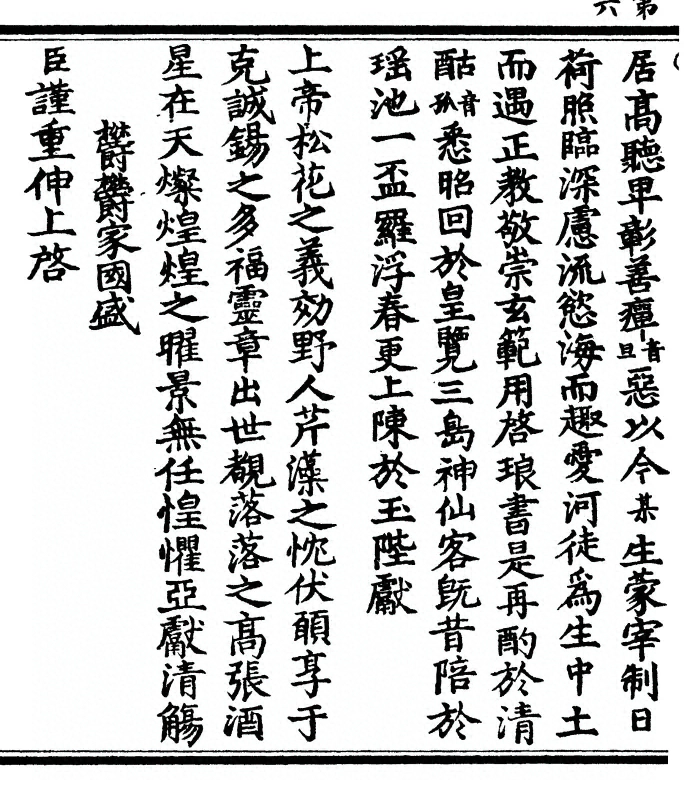 第
六
居高聽卑彰善癉音旦惡以今某生蒙宰制日
荷照臨深慮流慾海而趣愛河徒爲生中土
而遇正教敬崇玄範用啓琅書是再酌於清
酤音孤悉昭回於皇覽三島神仙客旣昔陪於
瑶池一盃羅浮春更上陳於玉陛獻
上帝松花之義効野人芹藻之忱伏願享于
克誠錫之多福靈章出世覩落落之高張酒
星在天燦煌煌之曜景無任惶懼亞獻清觴
欝欝家國盛
臣謹重伸上啓